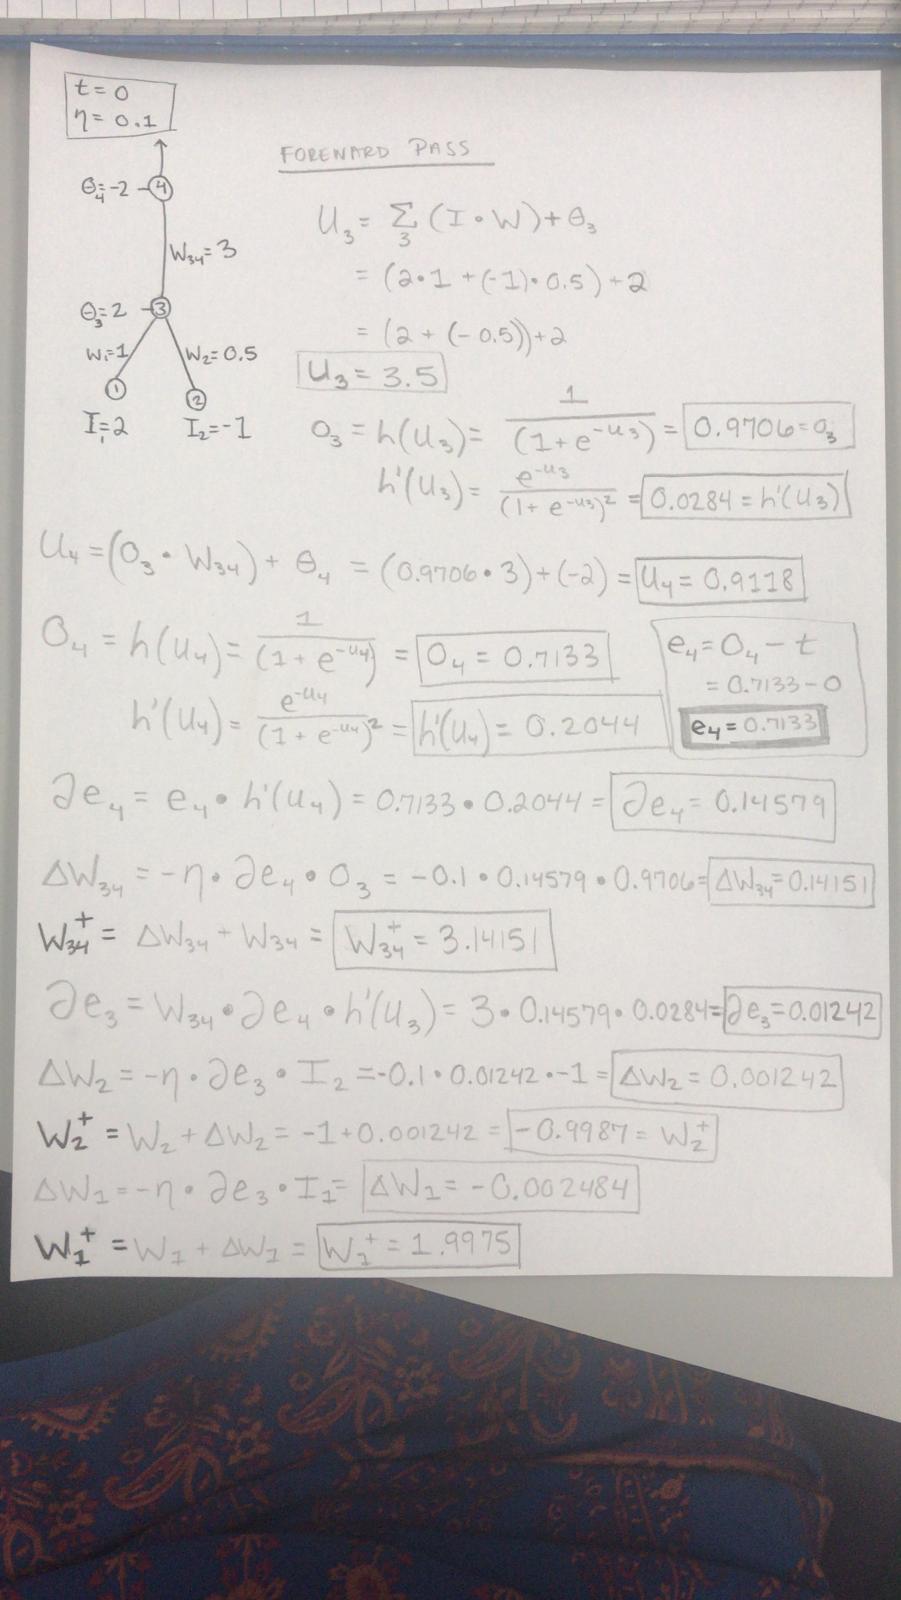 t = 0
η = 0.1
θ₄=-2
4
W₃₄=3
θ₃=2
3
W₁=1
W₂=0.5
1
2
I₁=2
I₂=-1
FOREWARD PASS
U₃ = Σ₃ (I • W) + θ₃
= (2•1 + (-1)•0.5) + 2
= (2 + (-0.5)) + 2
U₃ = 3.5
O₃ = h(U₃) = 1/(1+e^-u₃) = 0.9706 = O₃
h'(U₃) = e^-u₃/(1+e^-u₃)² = 0.0284 = h'(U₃)
U₄ = (O₃ • W₃₄) + θ₄ = (0.9706•3)+(-2) = U₄ = 0.9118
O₄ = h(U₄) = 1/(1+e^-u₄) = O₄ = 0.7133
h'(U₄) = e^-u₄/(1+e^-u₄)² = h'(U₄) = 0.2044
e₄ = O₄ - t
= 0.7133-0
e₄ = 0.7133
∂e₄ = e₄ • h'(U₄) = 0.7133 • 0.2044 = ∂e₄ = 0.14579
ΔW₃₄ = -η • ∂e₄ • O₃ = -0.1 • 0.14579 • 0.9706 = ΔW₃₄ = 0.14151
W₃₄⁺ = ΔW₃₄ + W₃₄ = W₃₄⁺ = 3.14151
∂e₃ = W₃₄ • ∂e₄ • h'(U₃) = 3 • 0.14579 • 0.0284 = ∂e₃ = 0.01242
ΔW₂ = -η • ∂e₃ • I₂ = -0.1 • 0.01242 • -1 = ΔW₂ = 0.001242
W₂⁺ = W₂ + ΔW₂ = -1+0.001242 = -0.9987 = W₂⁺
ΔW₁ = -η • ∂e₃ • I₁ = ΔW₁ = -0.002484
W₁⁺ = W₁ + ΔW₁ = W₁⁺ = 1.9975